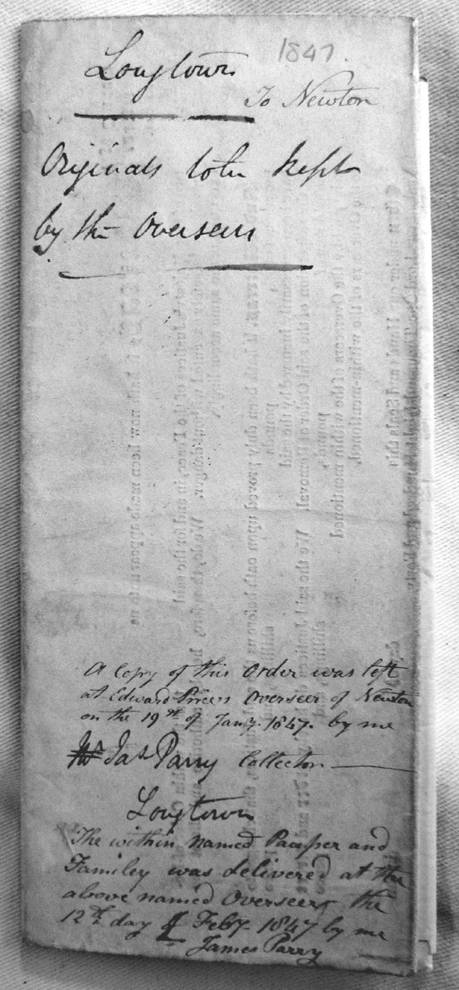 1847.
Longtown
To Newton
Originals to be kept
by the Overseers
A Copy of this Order was left
at Edward Price's Overseer of Newton
on the 19th of Jany. 1847. by me
Jas Parry Collector
Longtown
The within named Pauper and
Familey was delivered at the
above named Overseers the
12th day of Feby 1847 by me
James Parry